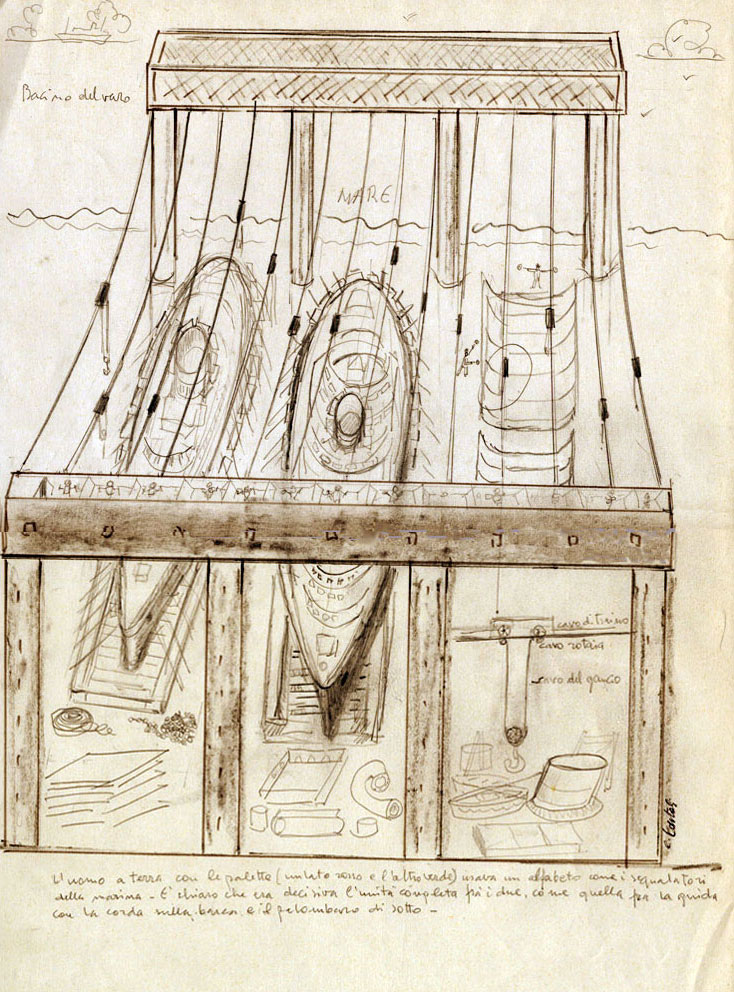 Bacino del varo
MARE
cavo di traino
cavo rotaia
cavo del gancio
L'uomo a terra con le palette (un lato rosso e l'altro verde) usava un alfabeto come i segnalatori
della marina - E' chiaro che era decisiva l'unità completa fra i due, come quella fra la guida
con la corda sulla barca e il palombaro di sotto -